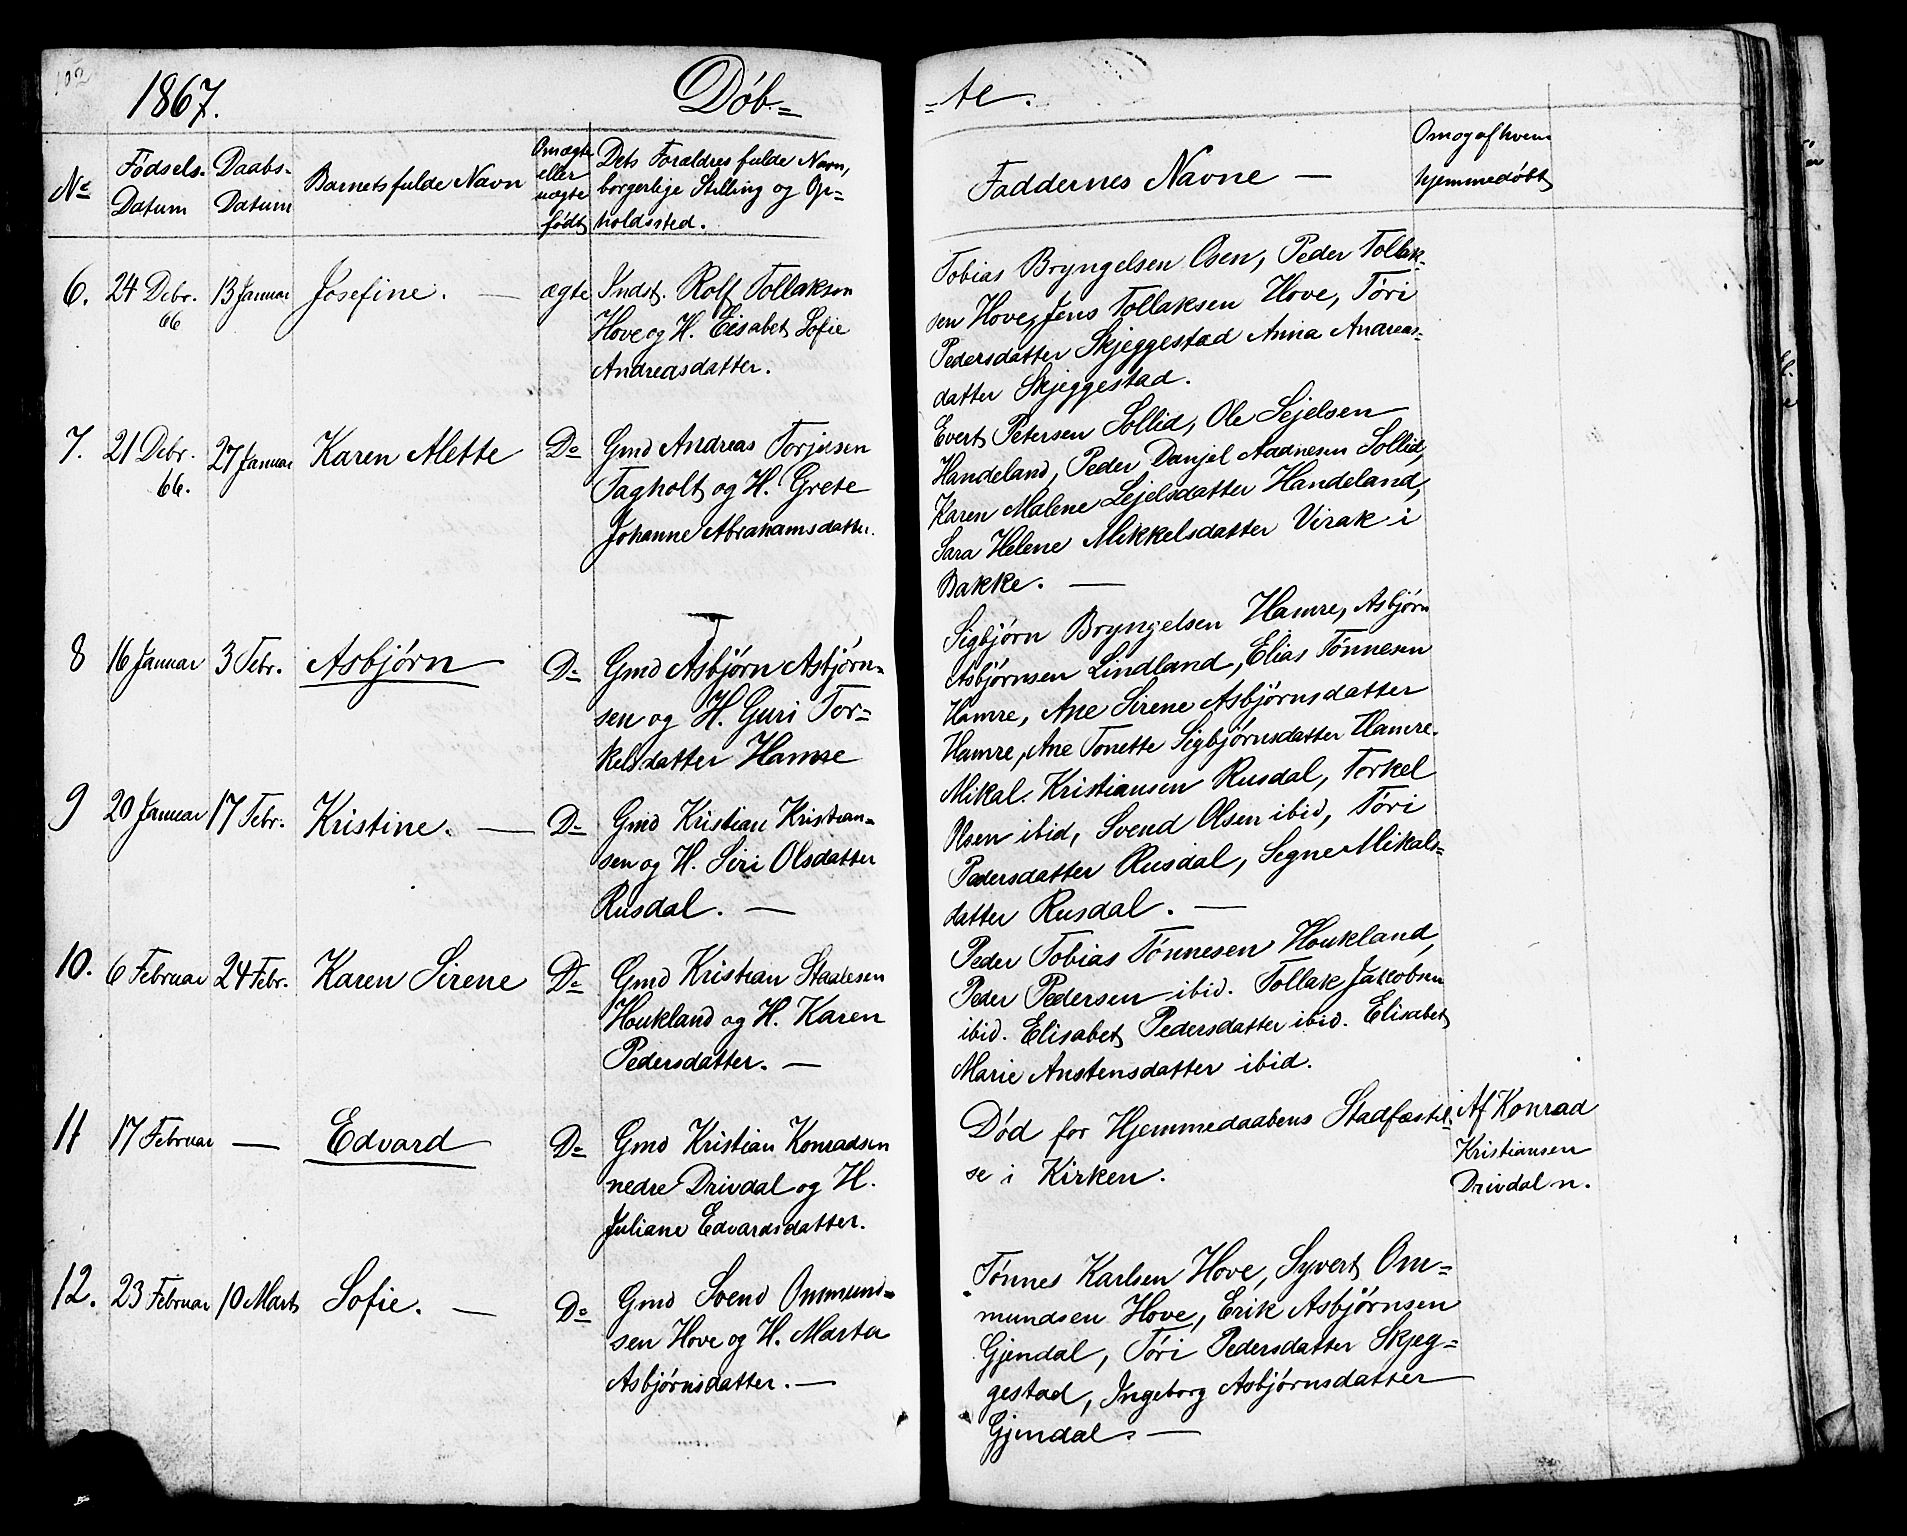 102
1867.
Døb=
=te.
No
Fødsels-
Datum
Daabs-
Datum
Barnets fulde Navn
Om ægte
eller
uægte
født
Dets Forældres fulde Navn,
borgerlige Stilling og Op=
holdssted.
Faddernes Navne —
Om og af hvem
hjemmedøbt
6.
24 Debr.
66
13 Januar
Josefine. —
ægte
Indst. Rolf Tollaksen
Hove og H. Elisabet Sofie
Andreasdatter.
Tobias Bryngelsen Osen, Peder Tollak-
sen Hove, Jens Tollaksen Hove, Tøri
Pedersdatter Skjeggestad Anna Andreas-
datter Skjeggestad.
7.
21 Debr.
66.
27 Januar
Karen Alette
Do
Gmd Andreas Torjusen
Fagholt og H. Grete
Johanne Abrahamsdatter.
Evert Petersen Sollid, Ole Lejelsen
Handeland, Peder Danjel Aadnesen Sollid,
Karen Malene Lejelsdatter Handeland,
Sara Helene Mikkelsdatter Virak i
Bakke. —
8
16 Januar
3 Febr.
Asbjørn
Do
Gmd Asbjørn Asbjørn=
sen og H. Guri Tor=
kelsdatter Hamre
Sigbjørn Bryngelsen Hamre, Asbjørn
Asbjørnsen Lindland, Elias Tønnesen
Hamre, Ane Sirene Asbjørnsdatter
Hamre, Ane Tonette Sigbjørnsdatter Hamre.
9
20 Januar
17 Febr.
Kristine. —
Do
Gmd Kristian Kristian=
sen og H. Siri Olsdatter
Rusdal. —
Mikal Kristiansen Rusdal, Torkel
Olsen ibid, Svend Olsen ibid, Tøri
Pedersdatter Rusdal, Segne Mikals=
datter Rusdal. —
10.
6 Februar
24 Febr.
Karen Sirene
Do
Gmd Kristian Staalesen
Houkland og H. Karen
Pedersdatter. —
Peder Tobias Tønnesen Houkland,
Peder Pedersen ibid. Tollak Jakobsen
ibid. Elisabet Pedersdatter ibid. Elisabet
Marie Austensdatter ibid.
11
17 Februar
—
Edvard
Do
Gmd Kristian Konradsen
nedre Drivdal og H.
Juliane Edvardsdatter.
Død før Hjemmedaabens Stadfæstel-
se i Kirken.
Af Konrad
Kristiansen
Drivdal n.
12.
23 Februar
10 Marts
Sofie. —
Do
Gmd Svend Ommund=
sen Hove og H. Marta
Asbjørnsdatter. —
Tønnes Karlsen Hove, Syvert Om=
mundsen Hove, Erik Asbjørnsen
Gjendal, Tøri Pedersdatter Skjeg=
gestad, Ingeborg Asbjørnsdatter
Gjendal. —